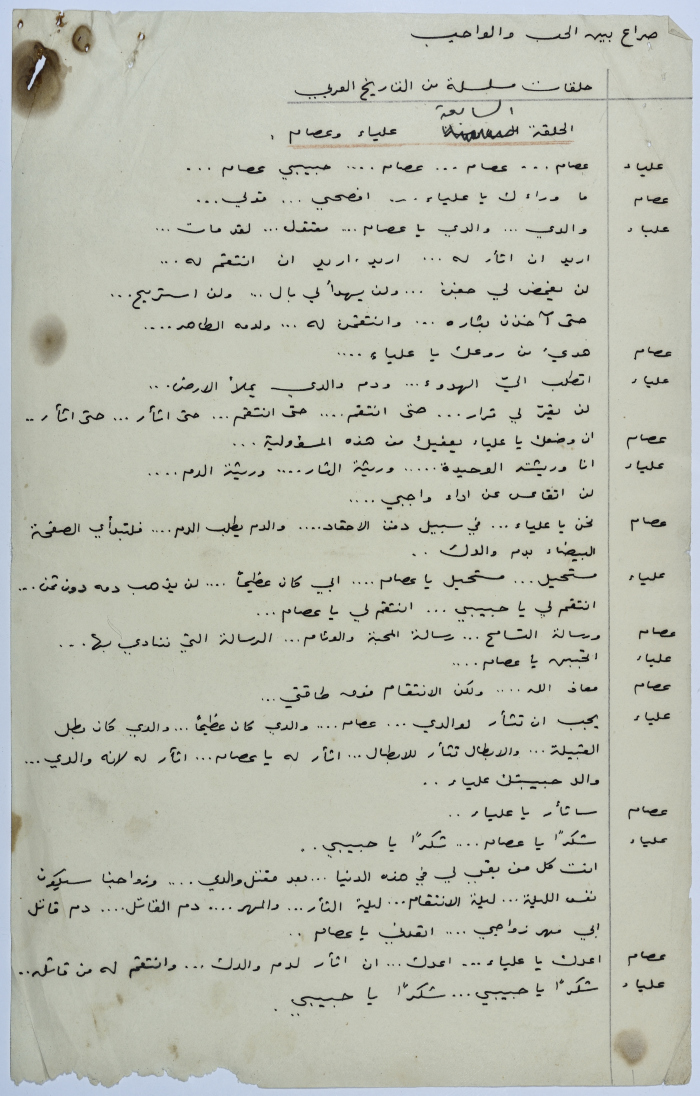 صراع بين الحب والواجب
حلقات مسلسلة من التاريخ العربي
السابعة
الحلقة علياء وعصام .
علياء عصام ... عصام ... عصام .... حبيبي عصام ...
عصام ما وراءك يا علياء ... افصحي ... قولي ...
علياء والدي ... والدي يا عصام ... مقتول ... لقد مات ...
اريد ان اثأر له ... اريد . اريد ان انتقم له ...
لن يغمض لي جفن ... ولن يهدأ لي بال ... ولن استريح ...
حتى آخذن بثاره ... وانتقمن له ... ولدمه الطاهر ....
عصام هدئي من روعك يا علياء ....
علياء اتطلب اليّ الهدوء ... ودم والدي يملأ الارض ...
لن يقرّ لي قرار ... حتى انتقم .... حتى انتقم ... حتى اثأر ... حتى اثأر ..
عصام ان وضعك يا علياء يعفيك من هذه المسؤولية ...
علياء انا وريثته الوحيدة ..... وريثة الثار .... وريثة الدم ....
لن اتقاعس عن اداء واجبي ....
عصام نحن يا علياء ... في سبيل دفن الاحقاد .... والدم يطلب الدم .... فلتبدأي الصفحة
البيضاء بدم والدك ..
علياء مستحيل ... مستحيل يا عصام .... ابي كان عظيمًا .... لن يذهب دمه دون ثمن ...
انتقم لي يا حبيبي ... انتقم لي يا عصام ...
عصام ورسالة التسامح ... رسالة المحبة والوئام ... الرسالة التي ننادي بها ...
علياء اتجبن يا عصام ....
عصام معاذ الله .... ولكن الانتقام فوق طاقتي ...
علياء يجب ان تثأر لوالدي ... عصام .... والدي كان عظيمًا ... والدي كان بطل
القبيلة ... والابطال تثأر للابطال ... اثأر له يا عصام ... اثأر له لانه والدي ...
والد حبيبتك علياء ..
عصام ساثأر يا علياء ..
علياء شكرًا يا عصام .... شكرًا يا حبيبي ..
انت كل من بقي لي في هذه الدنيا ... بعد مقتل والدي .... وزواجنا سيكون
نفس الليلة ... ليلة الانتقام ... ليلة الثأر ... والمهر .... دم القاتل .... دم قاتل
ابي مهر زواجي .... يا عصام ..
عصام اعدك يا علياء ... اعدك ... ان اثأر لدم والدك ... وانتقم له من قاتله ..
علياء شكرًا يا حبيبي ... شكرًا يا حبيبي .